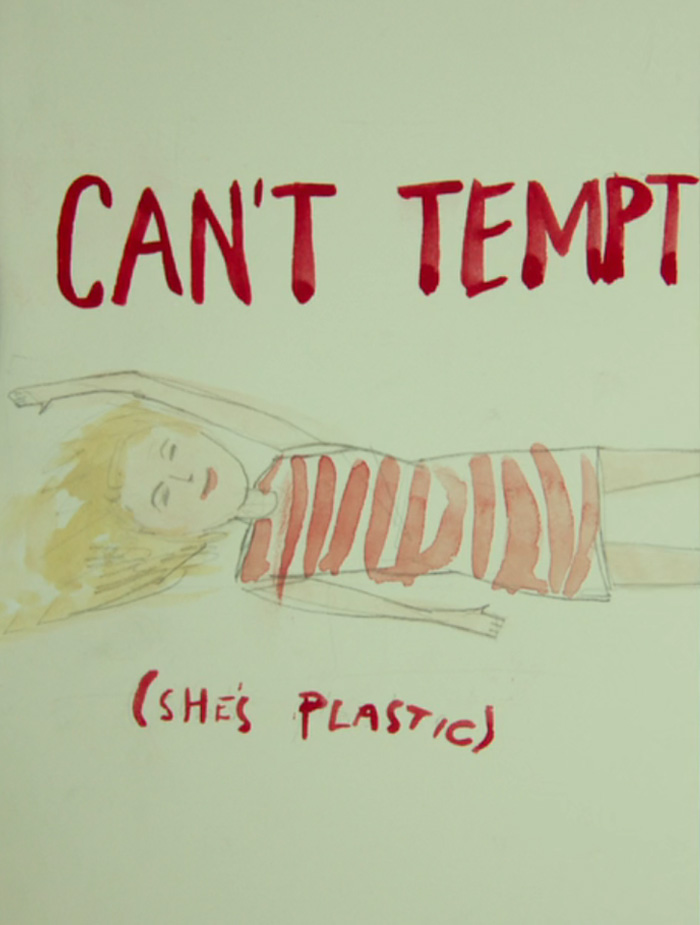 CAN'T TEMPT
(SHE'S PLASTIC)